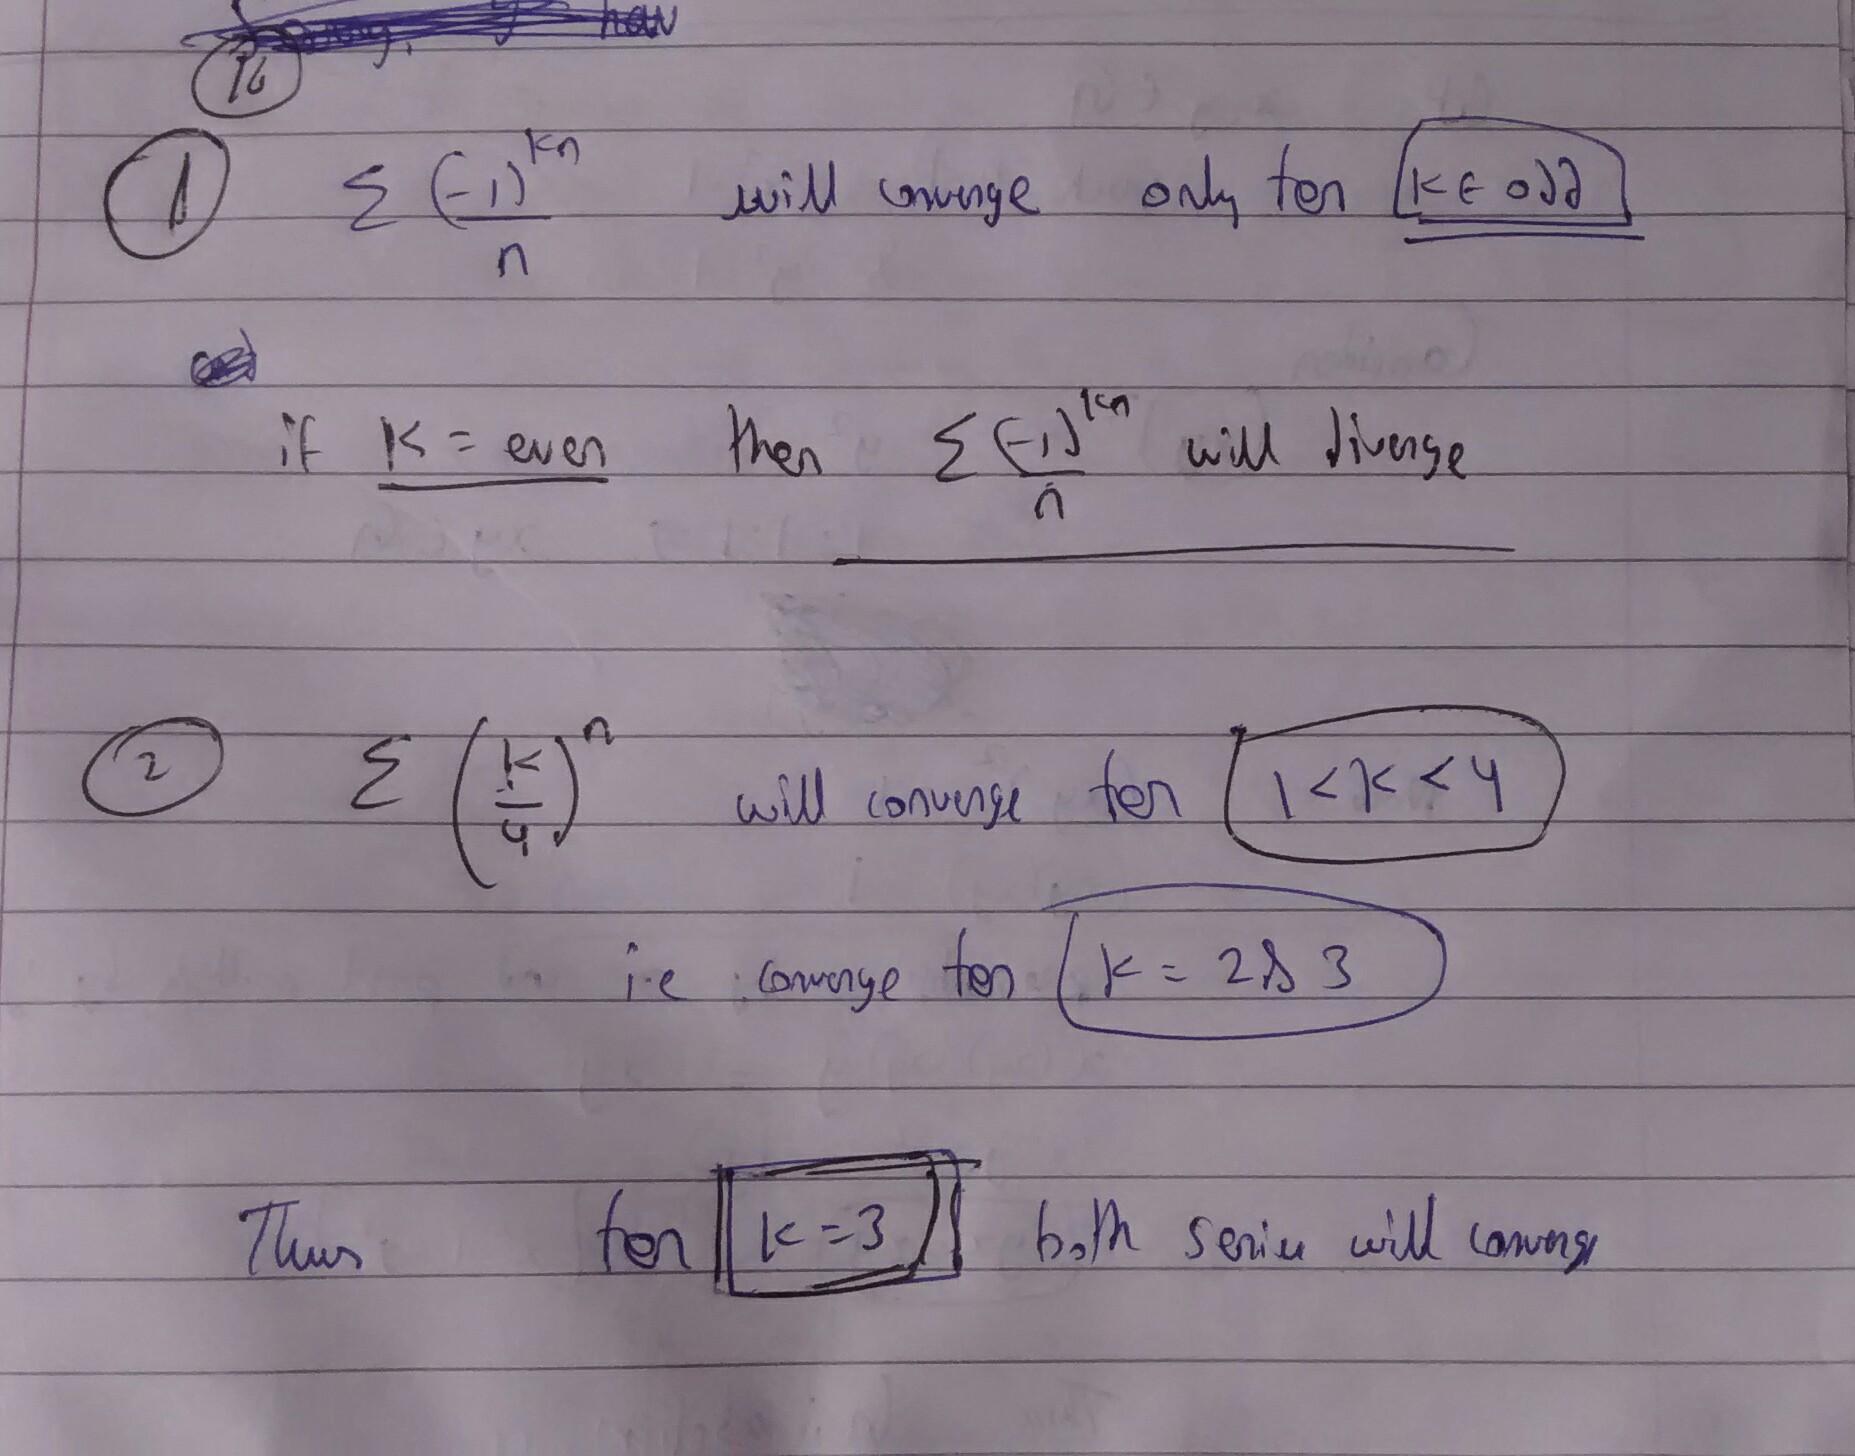 16
1 Σ (-1)^kn / n will converge only for k ∈ odd
if K = even then Σ (-1)^kn / n will diverge
2 Σ (k/4)^n will converge for 1 < k < 4
i.e converge for k = 2 & 3
Thus for k = 3 both series will converge